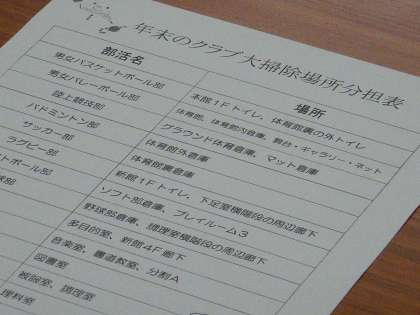 年末のクラブ大掃除場所分担表
部活名
場所
男女バスケットボール部
本館1Fトイレ、体育館裏の外トイレ
男女バレーボール部
体育館、体育館内倉庫、舞台・ギャラリー・ネット
陸上競技部
グラウンド体育倉庫、マット倉庫
バドミントン部
体育館外倉庫
サッカー部
体育館裏倉庫
ラグビー部
新館1Fトイレ、下足室横階段の周辺廊下
トボール部
ソフト部倉庫、プレイルーム3
球部
野球部倉庫、調理室横階段の周辺廊下
多目的室、新館4F廊下
音楽室、書道教室、分割A
図書室
被服室、調理室
理科室